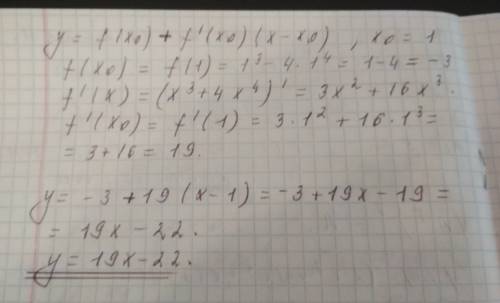 y = f(x0) + f'(x0)(x-x0), x0 = 1
f(x0) = f(1) = 1³ - 4·1⁴ = 1-4 = -3
f'(x) = (x³+4x⁴)' = 3x² + 16x³.
f'(x0) = f'(1) = 3·1² + 16·1³ =
= 3+16 = 19.
y = -3 + 19(x-1) = -3+19x-19 =
= 19x - 22.
y = 19x-22.